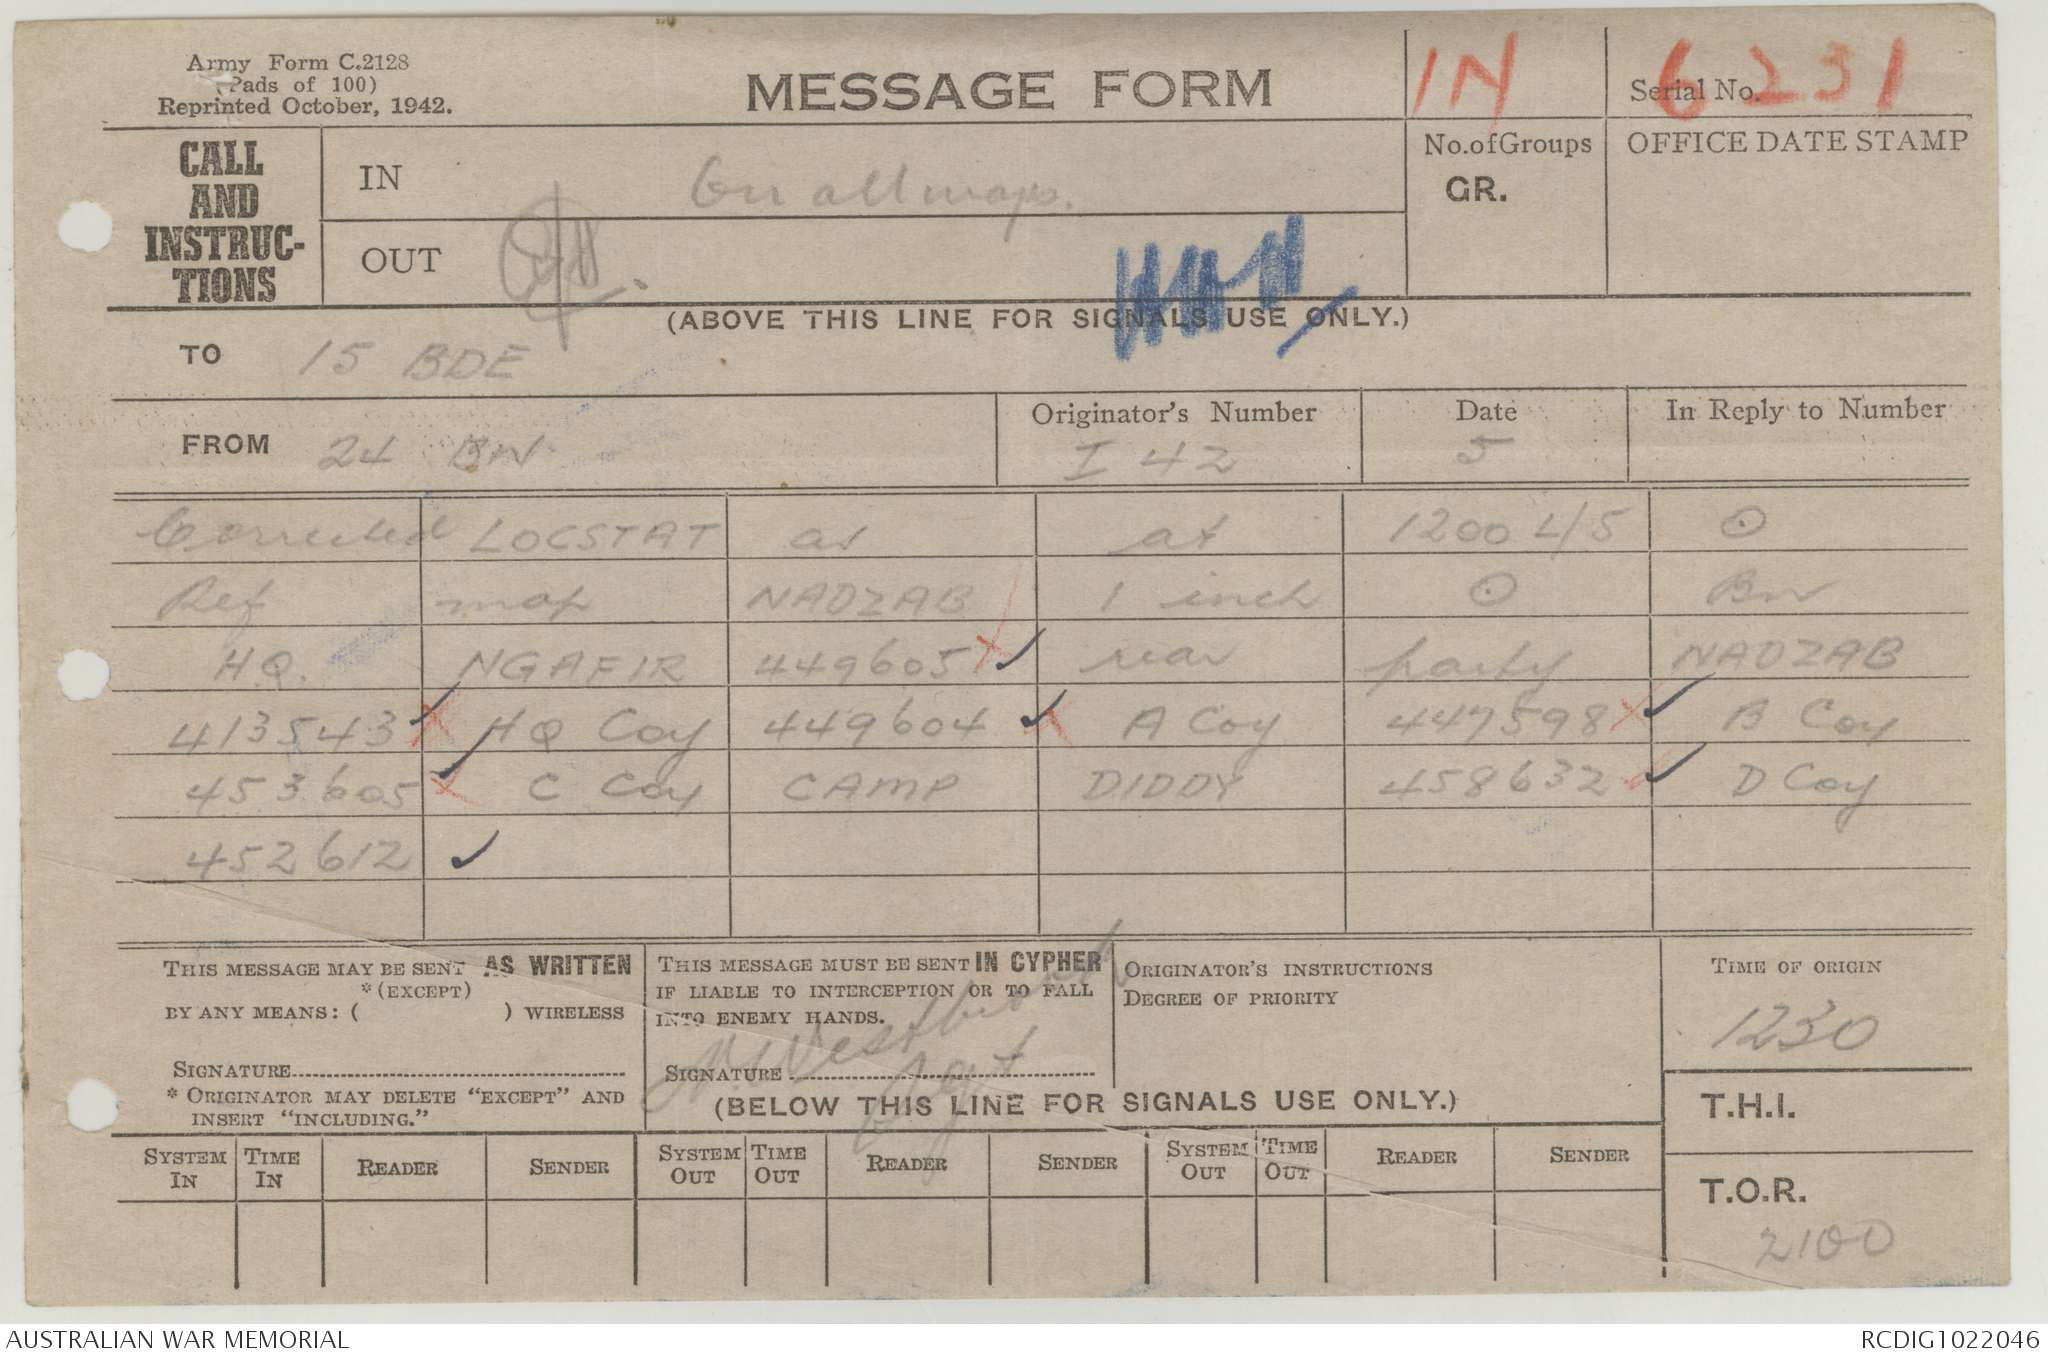 Army Form C.2128
(Pads of 100)
Reprinted October, 1942.
MESSAGE FORM
IN
Serial No. 6231
CALL AND INSTRUC-TIONS
IN On all maps.
No. of Groups
GR.
OFFICE DATE STAMP
OUT
(ABOVE THIS LINE FOR SIGNALS USE ONLY.)
TO 15 BDE
FROM 24 BN
Originator's Number I 42
Date 5
In Reply to Number
Corrected LOCSTAT as at 1200 L/5 ⊙
Ref map NADZAB 1 inch ⊙ Bn
H.Q. NGAFIR 449605 X ✓ rear party NADZAB
413543 ✓ X HQ Coy 449604 ✓ X A Coy 447598 X ✓ B Coy
453605 ✓ X C Coy CAMP DIDDY 458632 ✓ D Coy
452612 ✓
THIS MESSAGE MAY BE SENT AS WRITTEN
*(EXCEPT)
BY ANY MEANS: ( ) WIRELESS
SIGNATURE
* ORIGINATOR MAY DELETE "EXCEPT" AND
INSERT "INCLUDING."
THIS MESSAGE MUST BE SENT IN CYPHER
IF LIABLE TO INTERCEPTION OR TO FALL
INTO ENEMY HANDS.
SIGNATURE
ORIGINATOR'S INSTRUCTIONS
DEGREE OF PRIORITY
TIME OF ORIGIN
1230
(BELOW THIS LINE FOR SIGNALS USE ONLY.)
T.H.I.
SYSTEM IN TIME IN READER SENDER SYSTEM OUT TIME OUT READER SENDER SYSTEM OUT TIME OUT READER SENDER
T.O.R.
2100
AUSTRALIAN WAR MEMORIAL
RCDIG1022046